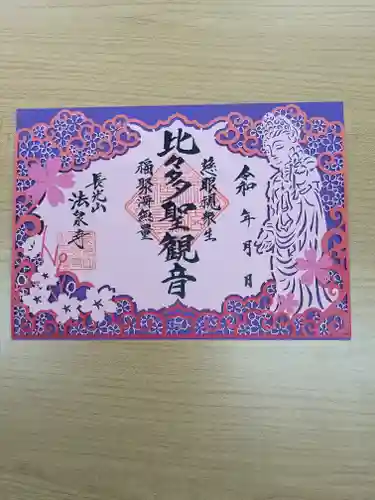 令和 年 月 日
慈眼視衆生
比々多聖観音
福聚海無量
長光山
法泉寺
No